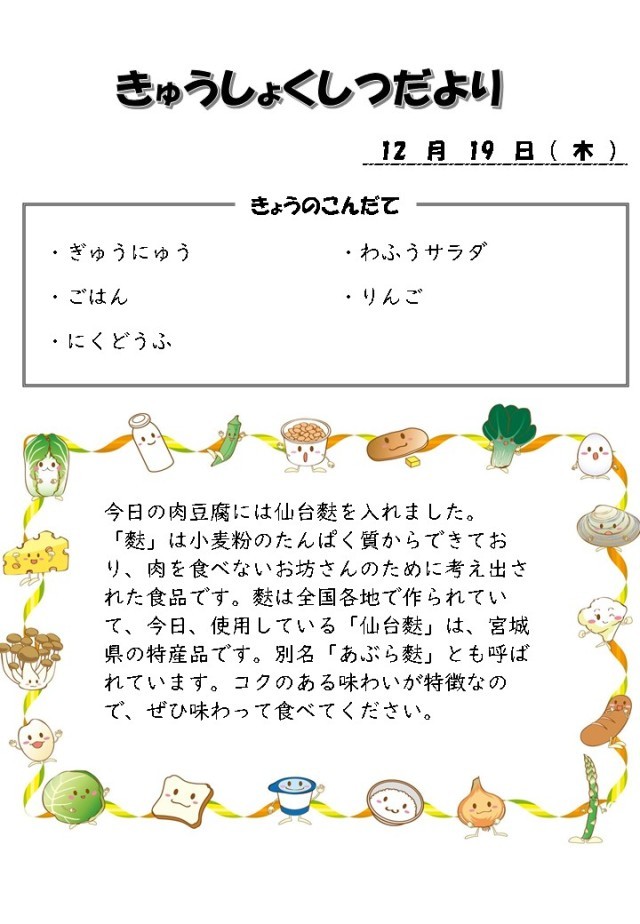 きゅうしょくしつだより
12 月 19 日 ( 木 )
きょうのこんだて
・ぎゅうにゅう
・ごはん
・にくどうふ
・わふうサラダ
・りんご
今日の肉豆腐には仙台麩を入れました。
「麩」は小麦粉のたんぱく質からできてお
り、肉を食べないお坊さんのために考え出さ
れた食品です。麩は全国各地で作られてい
て、今日、使用している「仙台麩」は、宮城
県の特産品です。別名「あぶら麩」とも呼ば
れています。コクのある味わいが特徴なの
で、ぜひ味わって食べてください。